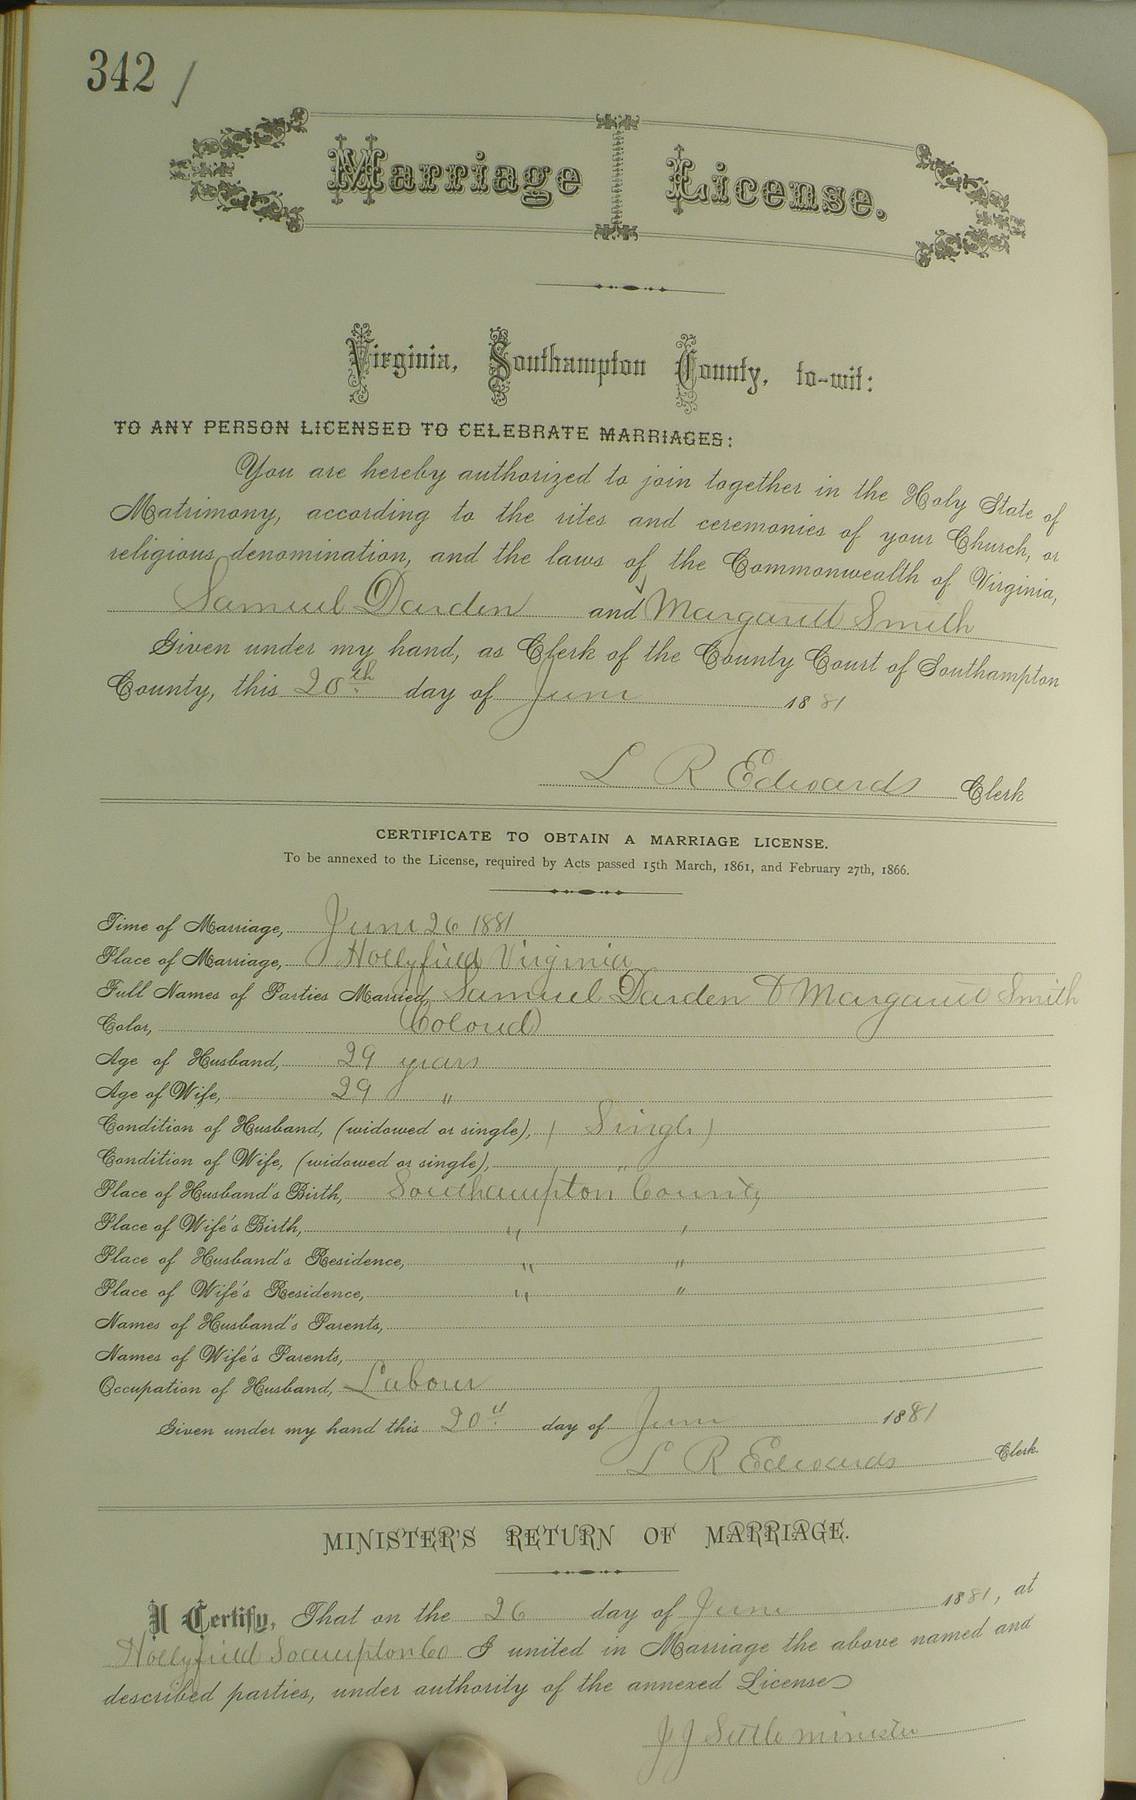 342 /
Marriage License.
Virginia, Southampton County, to-wit:
TO ANY PERSON LICENSED TO CELEBRATE MARRIAGES:
You are hereby authorized to join together in the Holy State of
Matrimony, according to the rites and ceremonies of your Church, or
religious denomination, and the laws of the Commonwealth of Virginia,
Samuel Darden and Margarett Smith
Given under my hand, as Clerk of the County Court of Southampton
County, this 20th day of June 1881
L R Edwards Clerk
CERTIFICATE TO OBTAIN A MARRIAGE LICENSE.
To be annexed to the License, required by Acts passed 15th March, 1861, and February 27th, 1866.
Time of Marriage, June 26 1881
Place of Marriage, Hollyfield Virginia
Full Names of Parties Married, Samuel Darden & Margarett Smith
Color, (Colored)
Age of Husband, 29 years
Age of Wife, 29 "
Condition of Husband, (widowed or single), (Single)
Condition of Wife, (widowed or single), "
Place of Husband's Birth, Southampton County
Place of Wife's Birth, " "
Place of Husband's Residence, " "
Place of Wife's Residence, " "
Names of Husband's Parents,
Names of Wife's Parents,
Occupation of Husband, Labour
Given under my hand this 20th day of June 1881
L R Edwards Clerk.
MINISTER'S RETURN OF MARRIAGE.
I Certify, That on the 26 day of June 1881, at
Hollyfield Soampton Co I united in Marriage the above named and
described parties, under authority of the annexed License
J J Settle minister